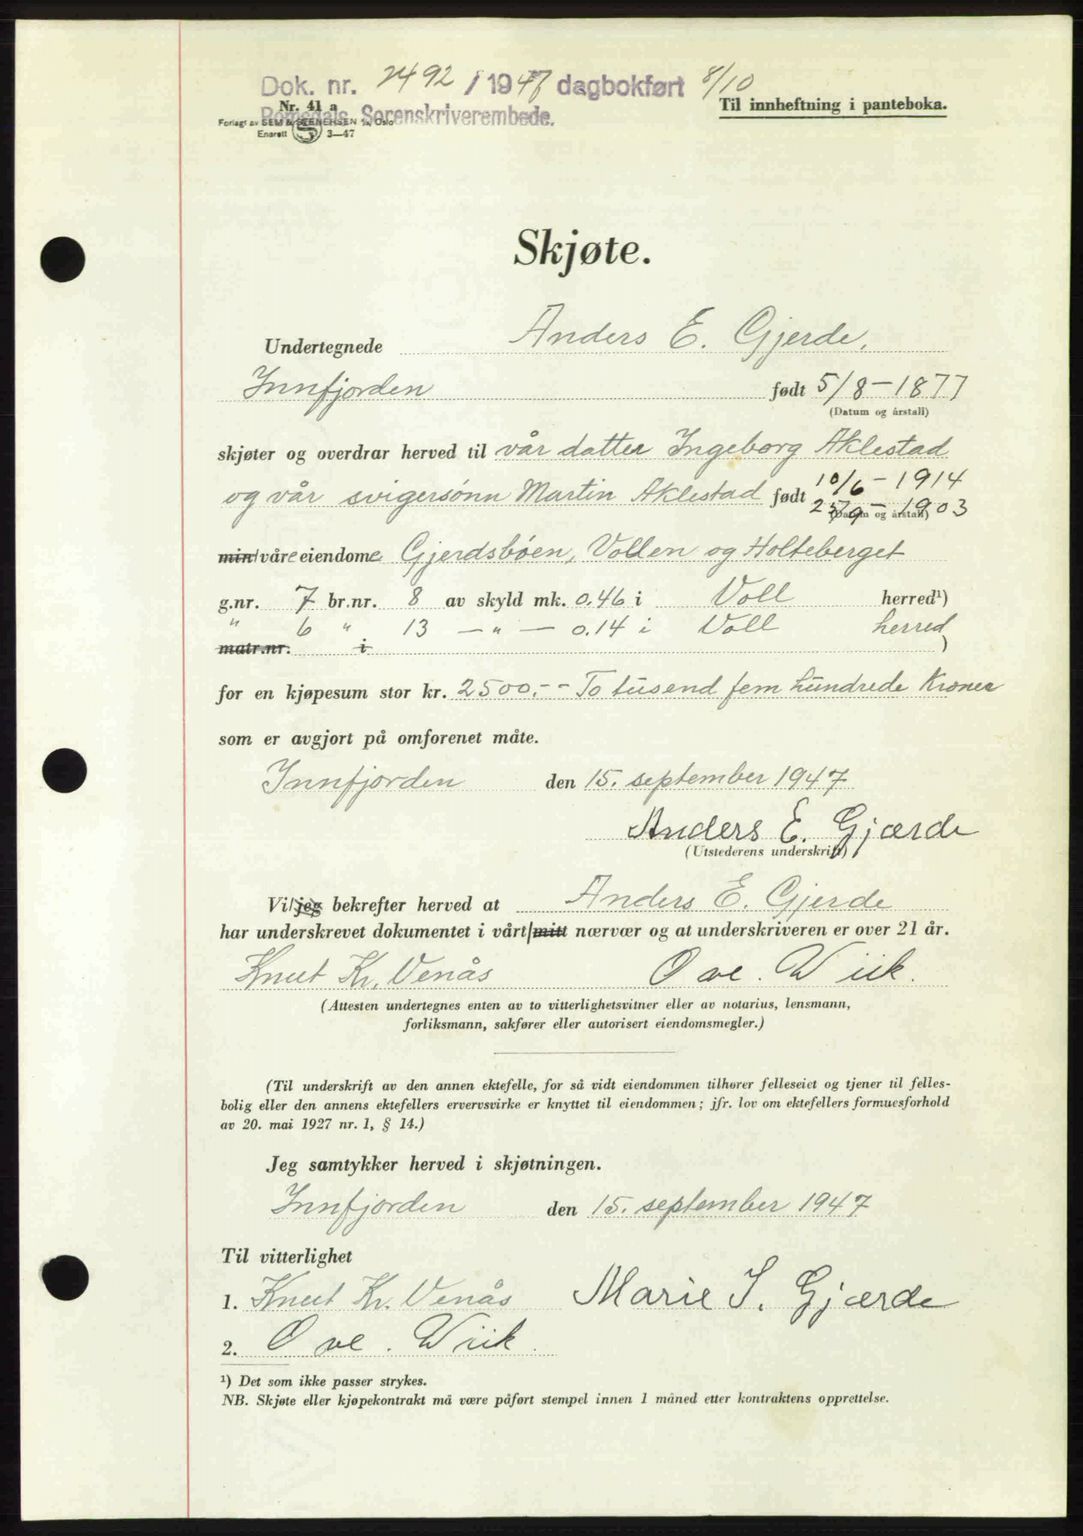 Dok. nr. 2492 / 1947 dagbokført 8/10
Romsdals Sorenskriverembede.
Nr. 41 a
Forlagt av SEM & STENERSEN A/S, Oslo
Enerett 3—47
Til innheftning i panteboka.
Skjøte.
Undertegnede Anders E. Gjerde,
Innfjorden født 5/8 – 1877
(Datum og årstall)
skjøter og overdrar herved til vår datter Ingeborg Aklestad
og vår svigersønn Martin Aklestad født 10/6 – 1914
– 1903
(Datum og årstall)
min/våre eiendome Gjerdsbøen, Vollen og Holteberget
g.nr. 7 br.nr. 8 av skyld mk. 0.46 i Voll herred¹)
" 6 " 13 — " — 0.14 i Voll herred
matr.nr. i )
for en kjøpesum stor kr. 2500.-- To tusend fem hundrede Kroner
som er avgjort på omforenet måte.
Innfjorden den 15. september 1947
Anders E. Gjærde
(Utstederens underskrift)
Vi/jeg bekrefter herved at Anders E. Gjerde
har underskrevet dokumentet i vårt/mitt nærvær og at underskriveren er over 21 år.
Knut Kr. Venås Ove. Wiik.
(Attesten undertegnes enten av to vitterlighetsvitner eller av notarius, lensmann,
forliksmann, sakfører eller autorisert eiendomsmegler.)
(Til underskrift av den annen ektefelle, for så vidt eiendommen tilhører felleseiet og tjener til felles-
bolig eller den annens ektefellers ervervsvirke er knyttet til eiendommen; jfr. lov om ektefellers formuesforhold
av 20. mai 1927 nr. 1, § 14.)
Jeg samtykker herved i skjøtningen.
Innfjorden den 15. september 1947
Til vitterlighet
1. Knut Kr. Venås Marie I. Gjærde
2. Ove. Wiik.
¹) Det som ikke passer strykes.
NB. Skjøte eller kjøpekontrakt må være påført stempel innen 1 måned etter kontraktens opprettelse.